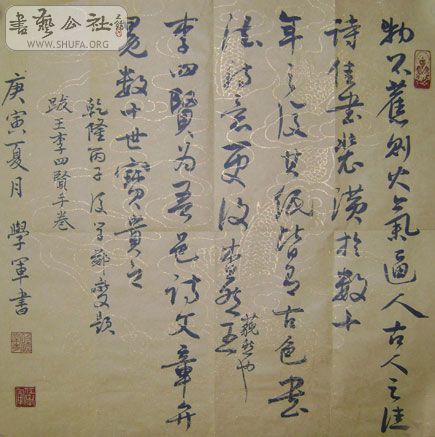 書藝公社
WWW.SHUFA.ORG
物不舊則火氣逼人古人之佳
詩佳書裝潢於數十
年之後其紙皆有古色書
法詩意更復
藹然也
王
李四賢為吾邑詩文章弁
冕數十世寶貴之
乾隆丙子後學鄭燮題
跋王李四賢手卷
庚寅夏月 學軍書